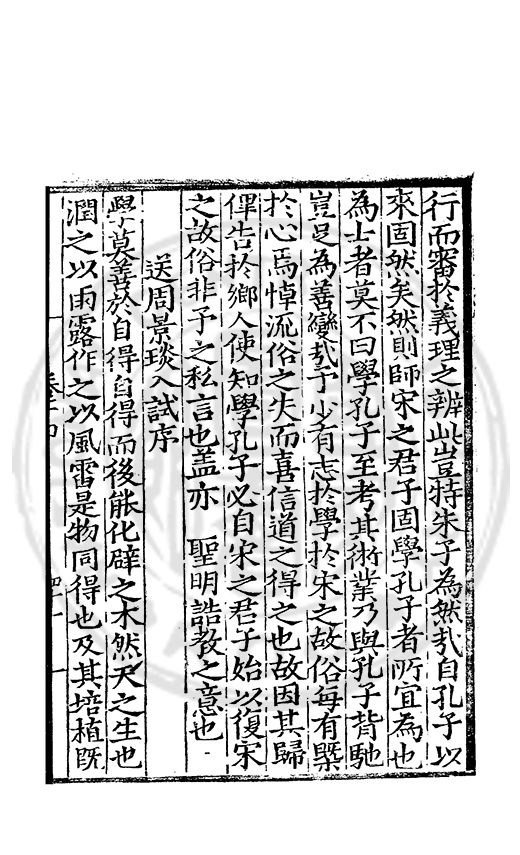 行而審於義理之辨此豈特朱子為然㢤自孔子以
來固然矣然則師宋之君子固學孔子者所宜為也
為士者莫不曰學孔子至考其術業乃與孔子背馳
豈足為善變㢤予少有志於學於宋之故俗每有槩
於心焉悼流俗之失而喜信道之得之也故因其歸
俾告於鄉人使知學孔子必自宋之君子始以復宋
之故俗非予之私言也盖亦 聖明誥教之意也
送周景琰入試序
學莫善於自得自得而後能化辟之木然天之生也
潤之以雨露作之以風雷是物同得也及其培植既